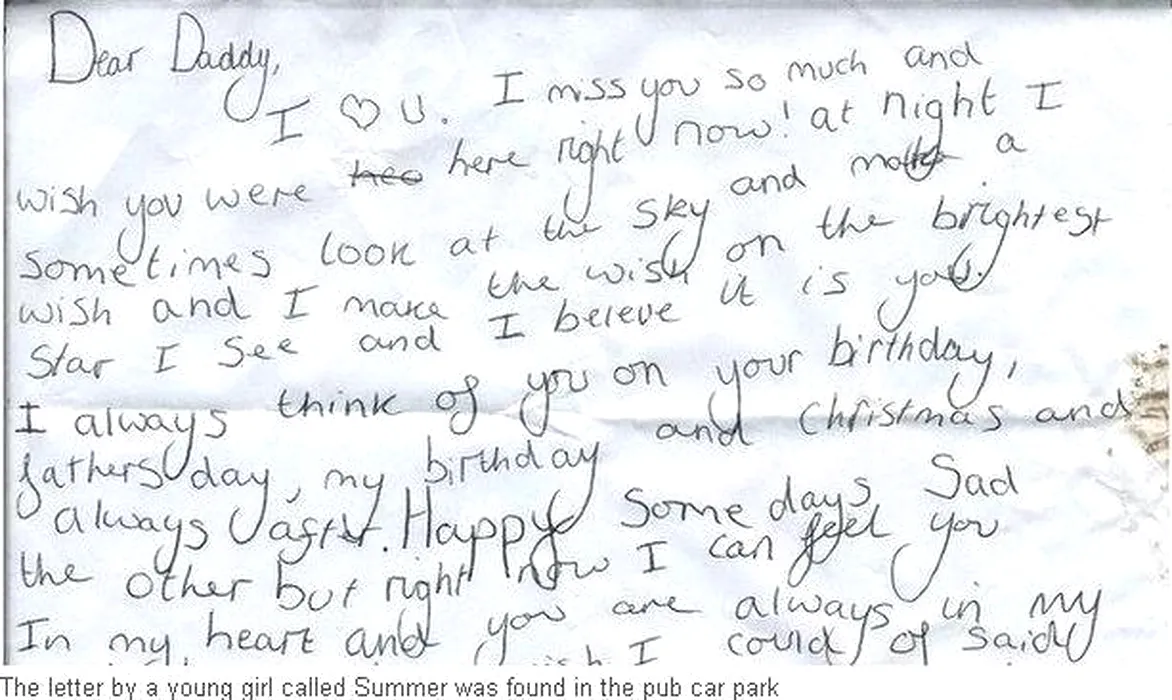 Dear Daddy,
I ♡ U. I miss you so much and
wish you were here right now! at night I
sometimes look at the sky and make a
wish and I make the wish on the brightest
Star I See and I beleve it is you.
I always think of you on your birthday,
fathers day, my birthday and Christmas and
always after. Happy Some days Sad
the other but right now I can feel you
In my heart and you are always in my
wish I could of said
The letter by a young girl called Summer was found in the pub car park